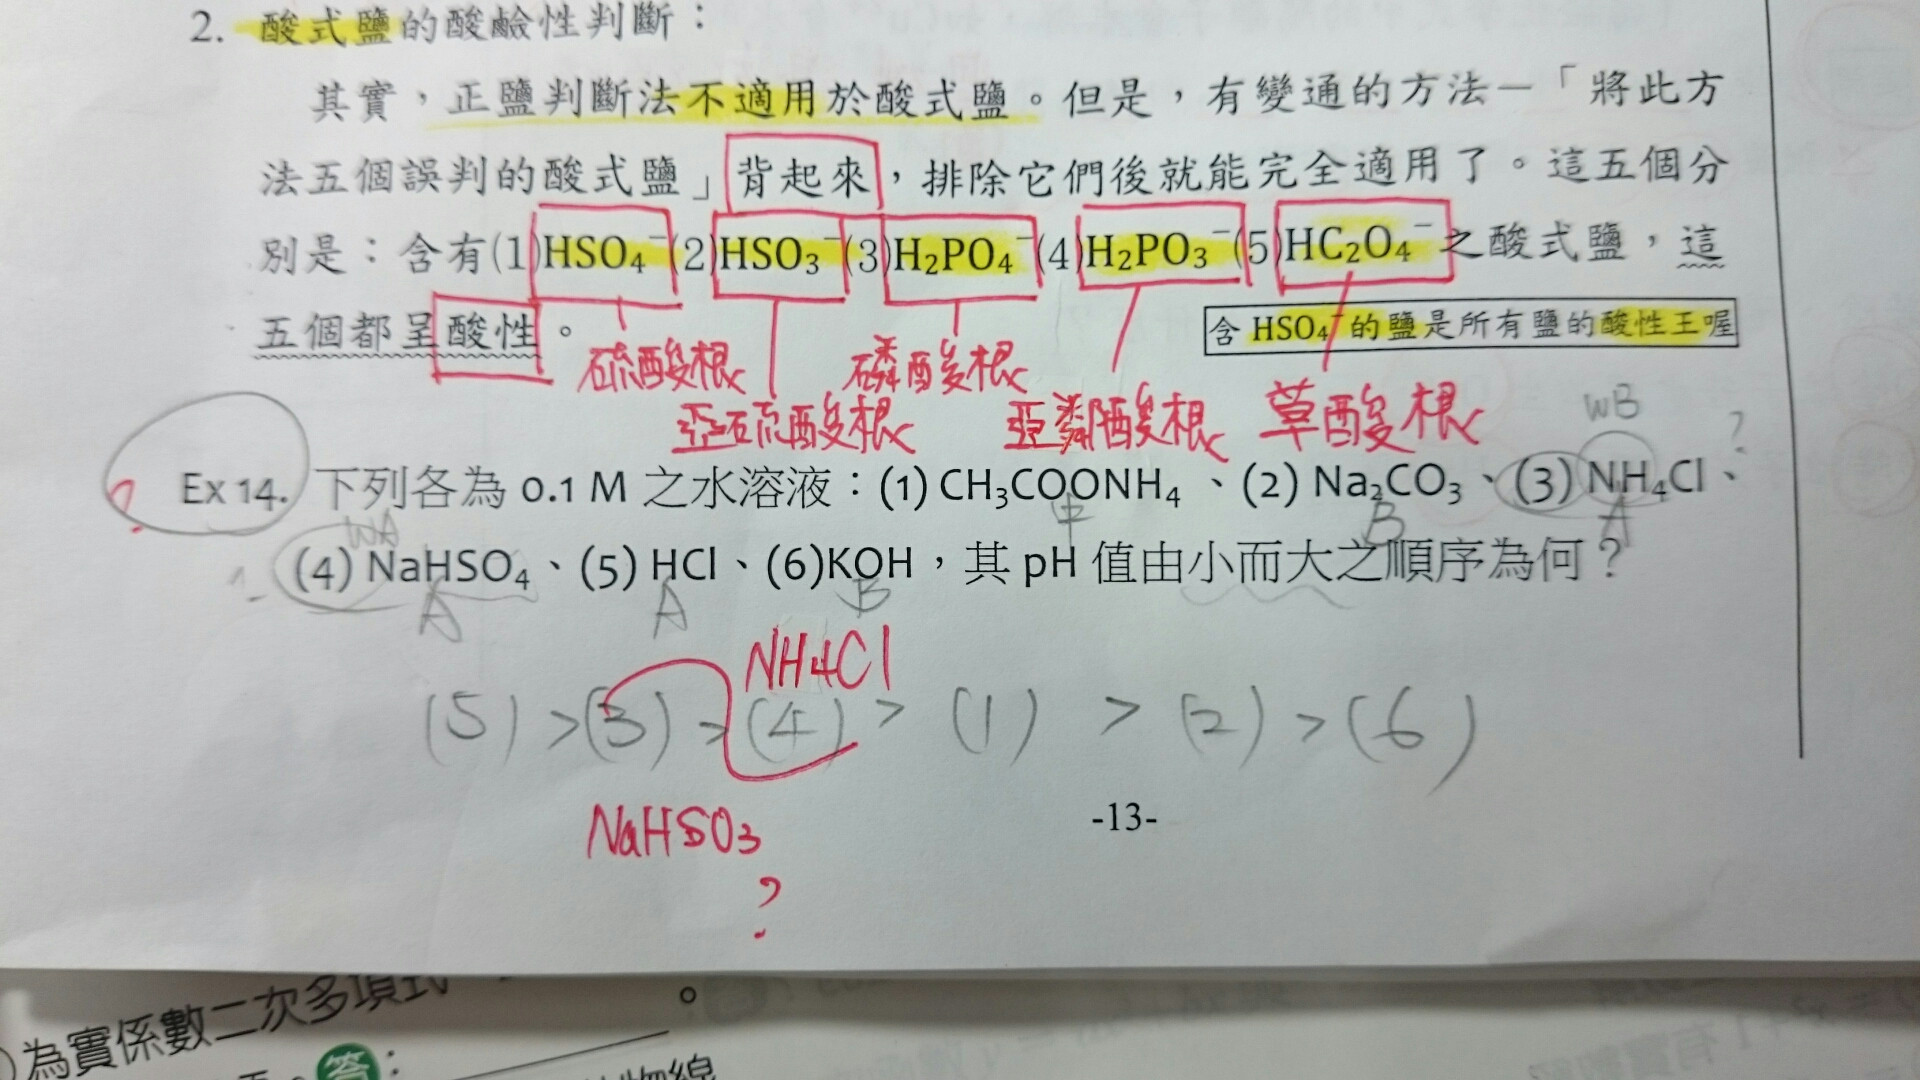 2. 酸式鹽的酸鹼性判斷：
其實，正鹽判斷法不適用於酸式鹽。但是，有變通的方法－「將此方
法五個誤判的酸式鹽」背起來，排除它們後就能完全適用了。這五個分
別是：含有(1)HSO₄⁻(2)HSO₃⁻(3)H₂PO₄⁻(4)H₂PO₃⁻(5)HC₂O₄⁻之酸式鹽，這
五個都呈酸性。
含 HSO₄⁻的鹽是所有鹽的酸性王喔
硫酸根 磷酸根
亞硫酸根 亞磷酸根 草酸根
WB ?
? Ex 14. 下列各為 0.1 M 之水溶液：(1) CH₃COONH₄、(2) Na₂CO₃、(3) NH₄Cl、
WA 中 B A
(4) NaHSO₄、(5) HCl、(6)KOH，其 pH 值由小而大之順序為何？
A A B
NH4Cl
(5) > (3) > (4) > (1) > (2) > (6)
NaHSO3
?
-13-
為實係數二次多項式
答：